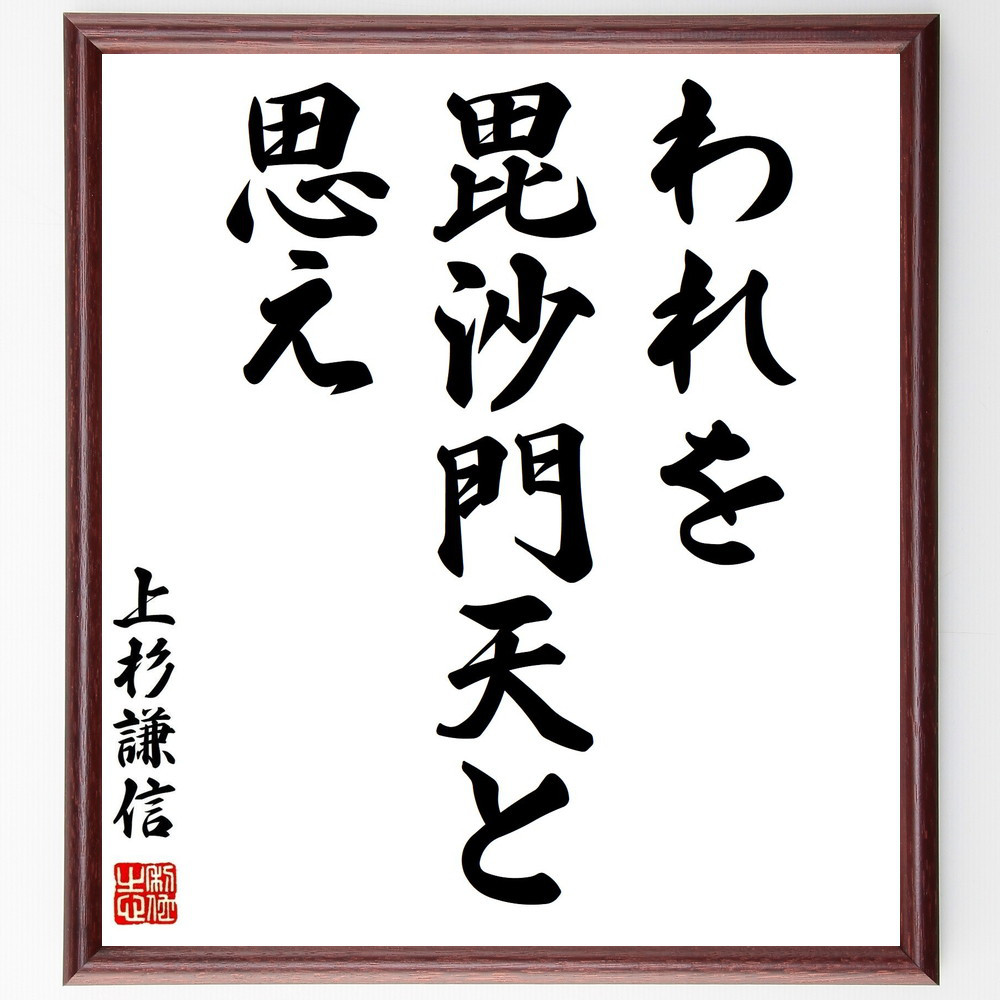 われを
毘沙門天と
思え
上杉謙信